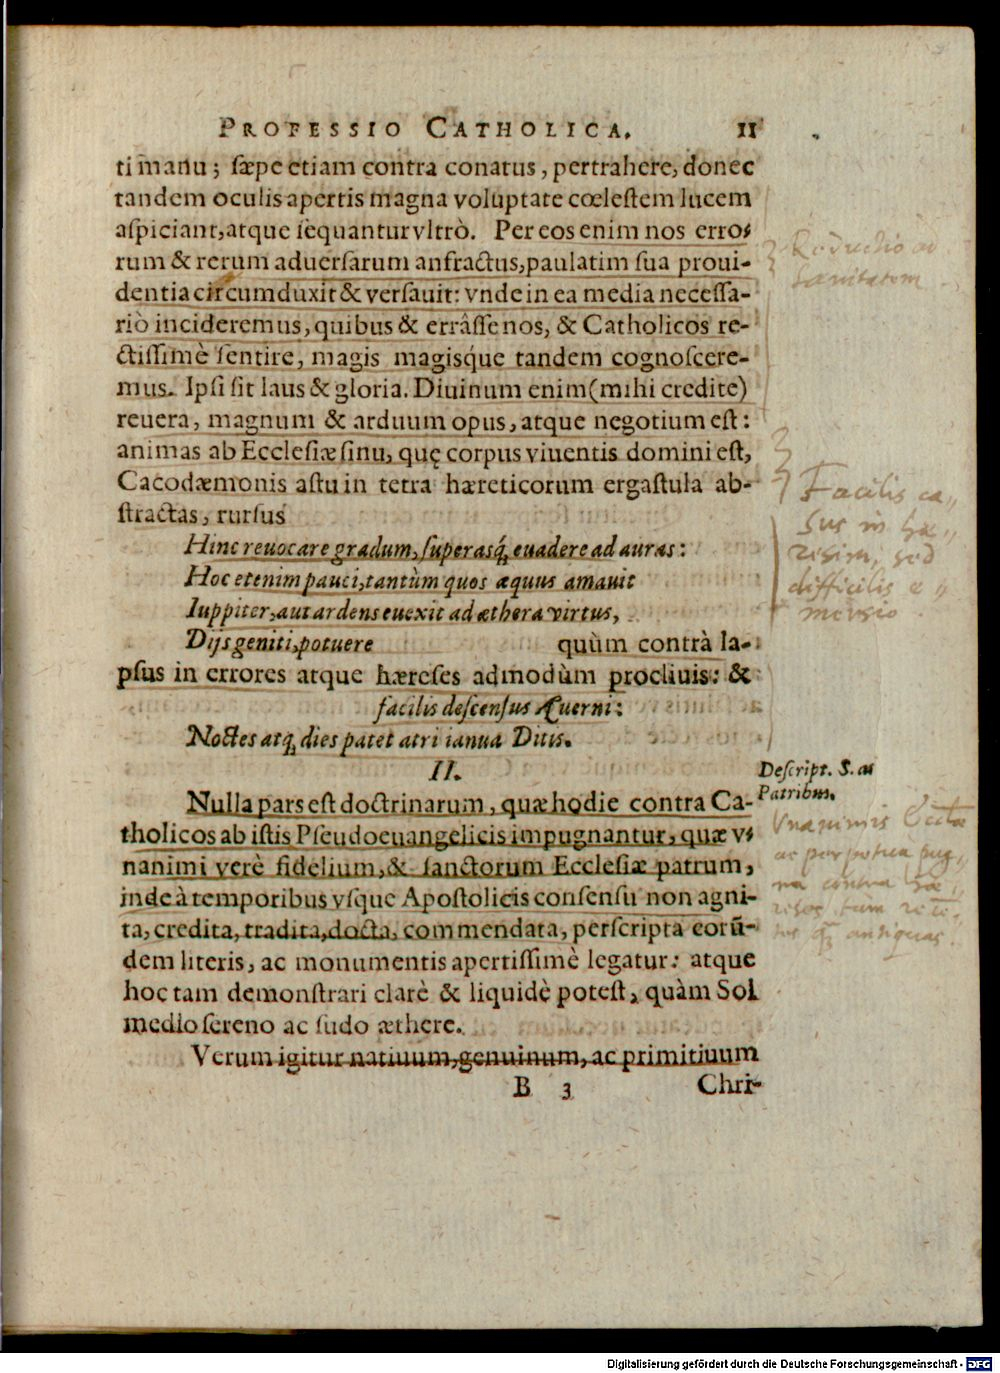 PROFESSIO CATHOLICA. 11
ti manu; sæpe etiam contra conatus, pertrahere, donec
tandem oculis apertis magna voluptate cœlestem lucem
aspiciant, atque sequantur vltrò. Per eos enim nos erro-
rum & rerum aduersarum anfractus, paulatim sua proui-
dentia circumduxit & versauit: vnde in ea media necessa-
riò incideremus, quibus & errâsse nos, & Catholicos re-
ctissimè sentire, magis magisq́ue tandem cognoscere-
mus. Ipsi sit laus & gloria. Diuinum enim (mihi credite)
reuera, magnum & arduum opus, atque negotium est:
animas ab Ecclesiæ sinu, quę corpus viuentis domini est,
Cacodæmonis astu in tetra hæreticorum ergastula ab-
stractas, rursus
Hinc reuocare gradum, superasq́; euadere ad auras:
Hoc etenim pauci, tantùm quos æquus amauit
Iuppiter, aut ardens euexit ad æthera virtus,
Dijs geniti, potuere quùm contrà la-
psus in errores atque hæreses admodùm procliuis: &
facilis descensus Auerni:
Noctes atq; dies patet atri ianua Ditis.
II.
Nulla pars est doctrinarum, quæ hodie contra Ca-
tholicos ab istis Pseudoeuangelicis impugnantur, quæ v-
nanimi verè fidelium, & sanctorum Ecclesiæ patrum,
inde à temporibus vsque Apostolicis consensu non agni-
ta, credita, tradita, docta, commendata, perscripta eorū-
dem literis, ac monumentis apertissimè legatur: atque
hoc tam demonstrari clarè & liquidè potest, quàm Sol
medio sereno ac sudo æthere.
Verum igitur natiuum, genuinum, ac primitiuum
B 3 Chri-
Descript. S. ac
Patribus.
Reductio ad
sanitatem
Facilis ca„
sus in hæ„
resim, sed
difficilis e„
mersio
Vnanimis
ac perpetua pug„
na contra hæ„
antiquas.
Digitalisierung gefördert durch die Deutsche Forschungsgemeinschaft - DFG